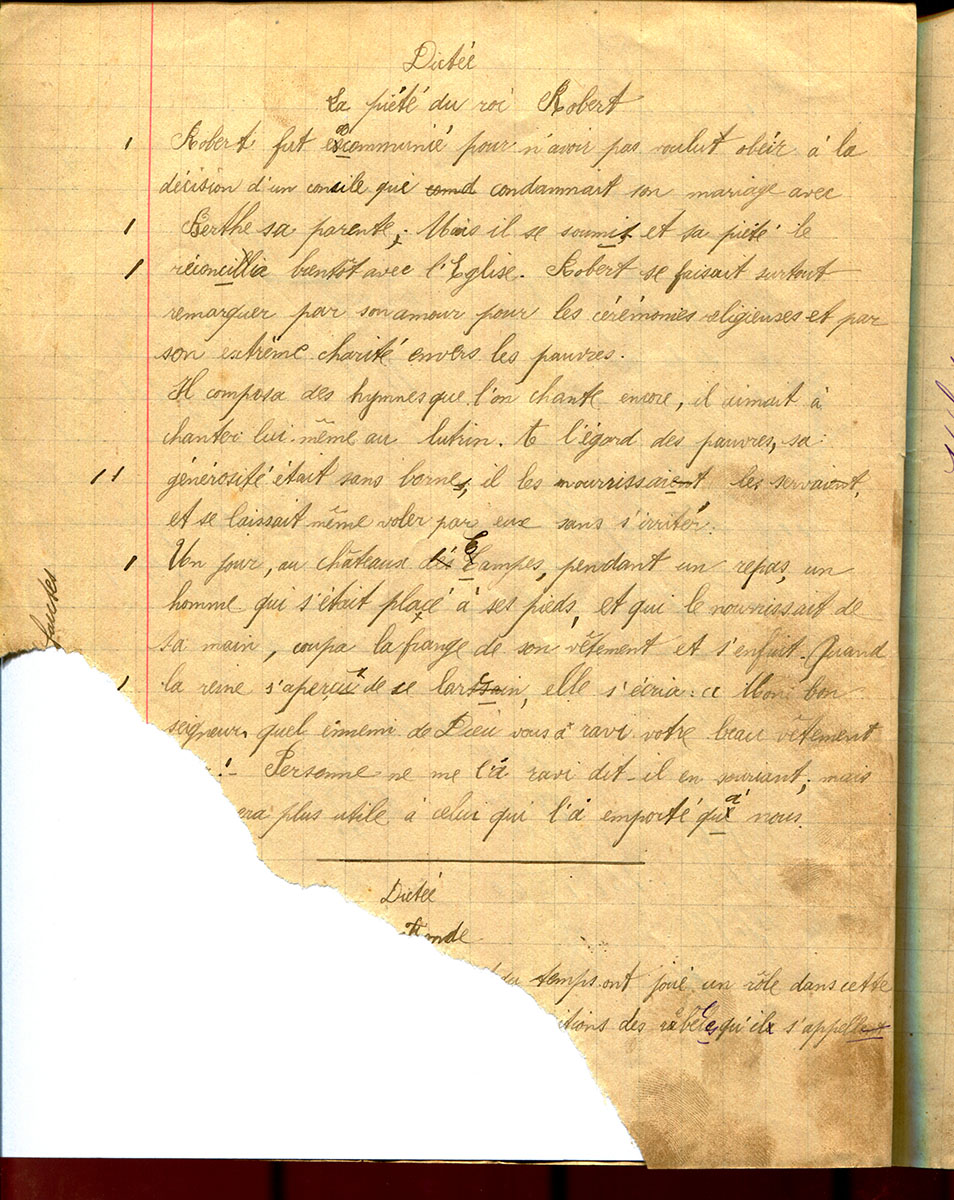 Dictée
La piété du roi Robert
Robert fut excommunié pour n'avoir pas voulut obéir à la
décision d'un concile qui cond condamnait son mariage avec
Berthe sa parente, Mais il se soumit et sa piété le
réconcillia bientôt avec l'Eglise. Robert se faisait surtout
remarquer par son amour pour les cérémonies religieuses et par
son extrême charité envers les pauvres.
Il composa des hymnes que l'on chante encore, il aimait à
chanter lui-même au lutrin. A l'égard des pauvres, sa
générosité était sans bornes, il les nourrissaient, les servaient,
et se laissait même voler par eux sans s'irriter.
Un jour, au châteaux dés Etampes, pendant un repas, un
homme qui s'était placé à ses pieds, et qui le nourrissait de
sa main, coupa la frange de son vêtement et s'enfuit. Quand
la reine s'aperçut de ce larcin, elle s'écria : « Mon bon
seigneur, quel ennemi de Dieu vous à ravi votre beau vêtement
! - Personne ne me l'à ravi dit-il en souriant; mais
era plus utile à celui qui l'à emporté qu'à nous.
Dictée
du temps ont joué un rôle dans cette
itions des qu'il s'appellent
fautes